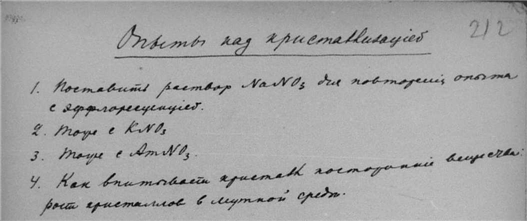 212
Опыты над кристаллизаціей
1. Поставить раствор NaNO3 для повторенія опыта
с эффлоресценціей.
2. Тоже с KNO3
3. Тоже с AmNO3.
4. Как впитывости кристалл посторонніе вещества:
рост кристаллов в мутной среде.